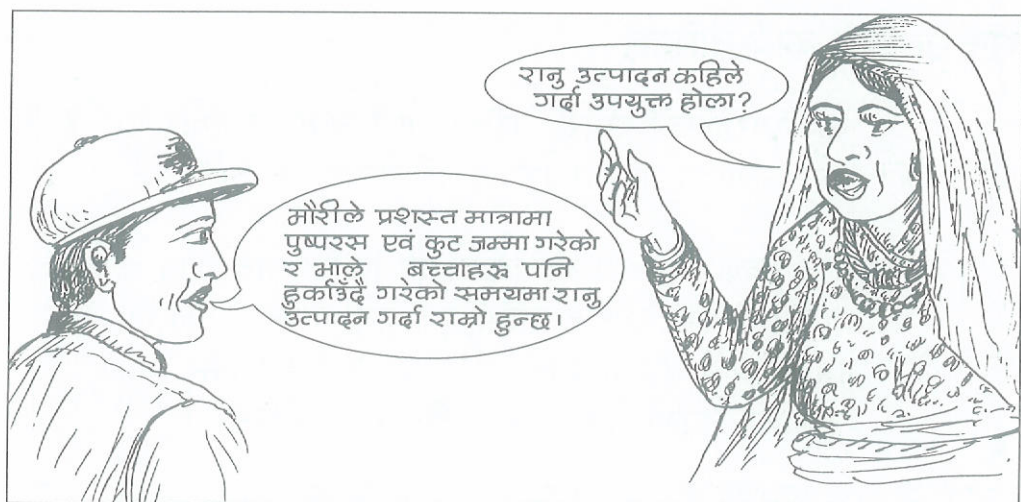 रानु उत्पादन कहिले
गर्दा उपयुक्त होला?
मौरीले प्रशस्त मात्रामा
पुष्परस एवं कुट जम्मा गरेको
र भाले बच्चाहरू पनि
हुर्काउँदै गरेको समयमा रानु
उत्पादन गर्दा राम्रो हुन्छ।